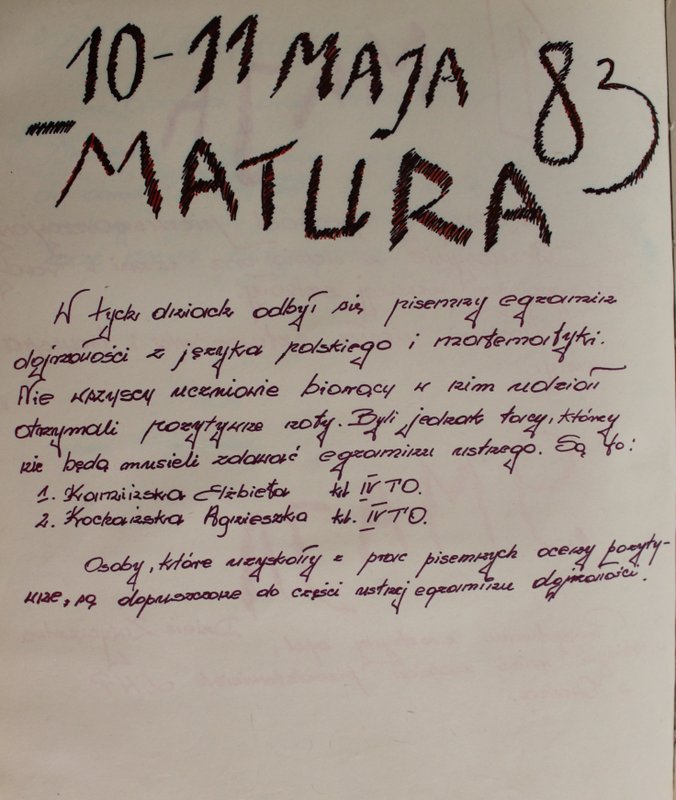 10-11 MAJA 83
- MATURA
W tych dniach odbył się pisemny egzamin
dojrzałości z języka polskiego i matematyki.
Nie wszyscy uczniowie biorący w nim udział
otrzymali pozytywne noty. Byli jednak tacy, którzy
nie będą musieli zdawać egzaminu ustnego. Są to:
1. Kamińska Elżbieta kl. IV TO.
2. Kochańska Agnieszka kl. IV TO.
Osoby, które uzyskały z prac pisemnych oceny pozyty-
wne, są dopuszczone do części ustnej egzaminu dojrzałości.